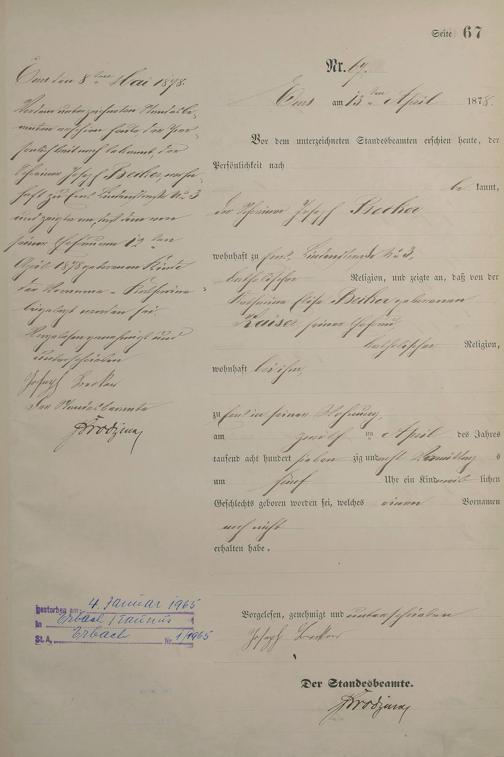 Seite 67
Nr. 67.
Ems am 13ten April 1878.
Vor dem unterzeichneten Standesbeamten erschien heute, der
Persönlichkeit nach
be kannt,
der Schreiner Joseph Becker
wohnhaft zu Ems, Lindenstraße No 3,
katholischer Religion, und zeigte an, daß von der
Katharina Elise Becker geborenen
Kaiser seiner Ehefrau
katholischer Religion,
wohnhaft bei ihm,
zu Ems in seiner Wohnung,
am zwölften April des Jahres
tausend acht hundert sieben zig und acht Vormittags
um fünf Uhr ein Kind weiblichen
Geschlechts geboren worden sei, welches einen Vornamen
noch nicht
erhalten habe.
Vorgelesen, genehmigt und unterschrieben
Joseph Becker
Der Standesbeamte.
Ems den 8ten Mai 1878.
Vor dem unterzeichneten Standesbe-
amten erschien heute, der Per-
sönlichkeit nach bekannt, der
Schreiner Joseph Becker, wohn-
haft zu Ems Lindenstraße No 3
und zeigte an, daß dem von
seiner Ehefrau am 12ten
April 1878 geborenen Kinde
der Vorname Katharina
beigelegt worden sei.
Vorgelesen genehmigt und
unterschrieben
Joseph Becker
Der Standesbeamte
gestorben am: 4. Januar 1965
in Erbach / Taunus
St. A. Erbach Nr. 1/1965